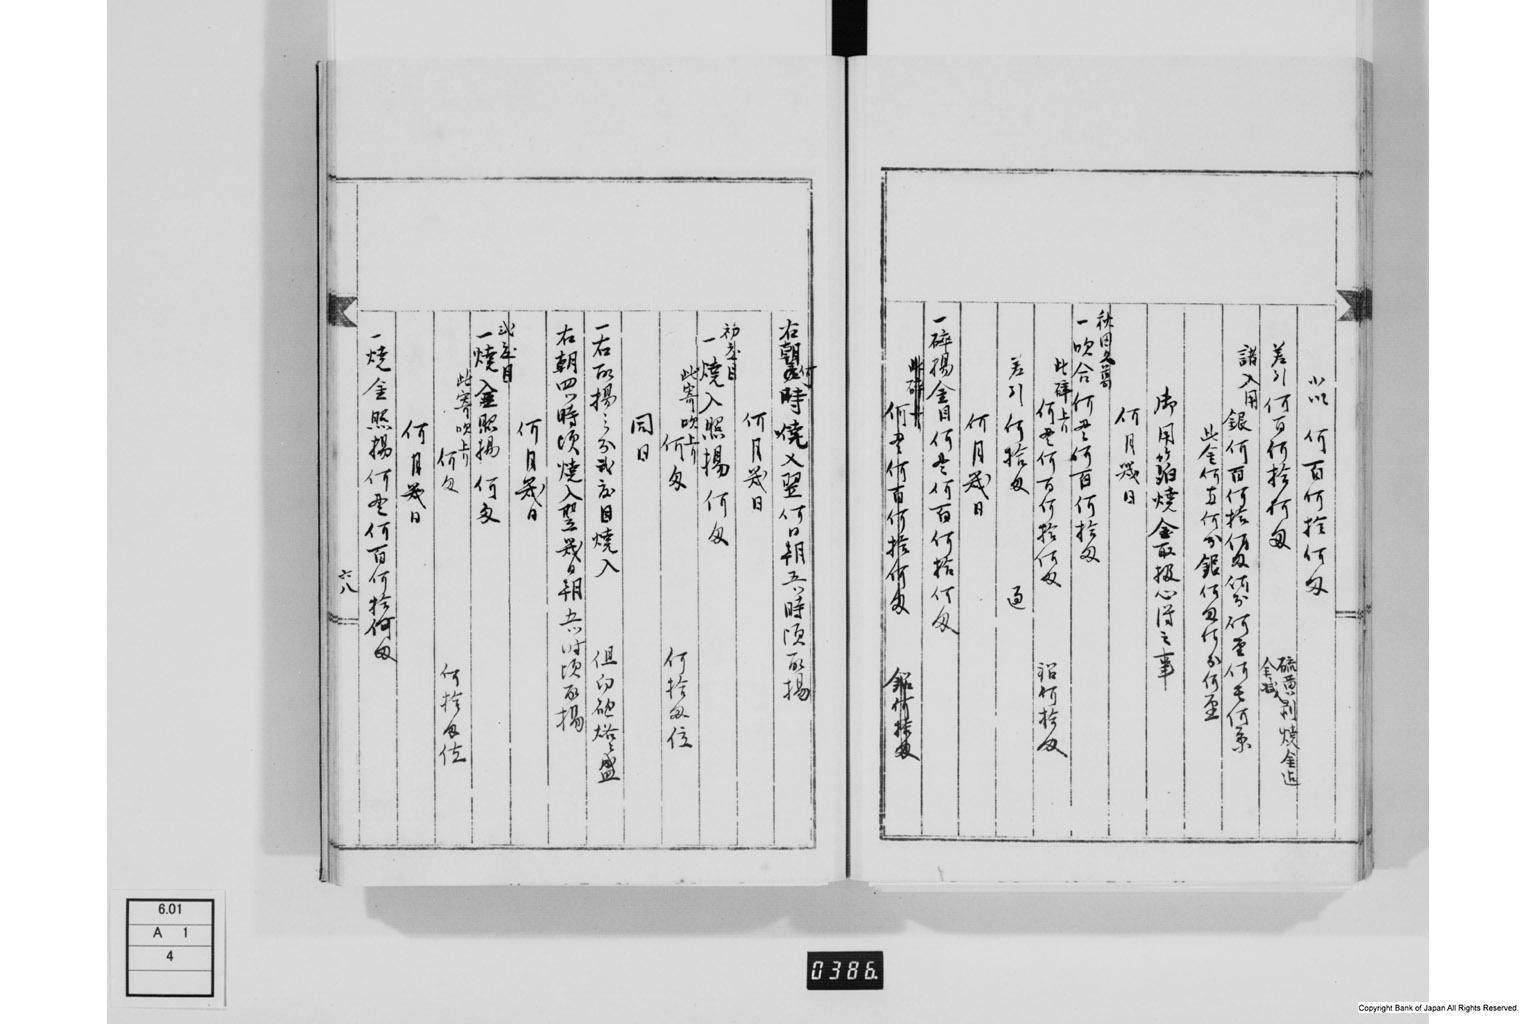 小以 何百何拾何匁
差引 何百何拾何匁
硫黄製焼金
諸入用 銀何百何拾何匁何分何厘何毛何糸
此金何両何分銀何匁何分何厘
御用箔焼金取扱心得之事
何月幾日
秋田久蔵
一吹合 何貫何百何拾匁
此砕上り
何貫何百何拾何匁 鉛何拾匁
差引 何拾匁
何月幾日
一砕揚金目何貫何百何拾何匁
此砕
何貫何百何拾何匁 鉛何拾匁
右朝何時焼入翌何日朝五ツ時頃取揚
何月幾日
初度目
一焼入照揚 何匁
此寄吹上り
何匁 何拾匁位
同日
一右取揚之分弐度目焼入
右朝四ツ時頃焼入翌幾日朝五ツ時頃取揚
何月幾日
弐度目
一焼入金照揚 何匁
此寄吹上り
何匁 何拾匁位
何月幾日
一焼金照揚何貫何百何拾何匁
六八
6.01
A 1
4
0386.
Copyright Bank of Japan All Rights Reserved.